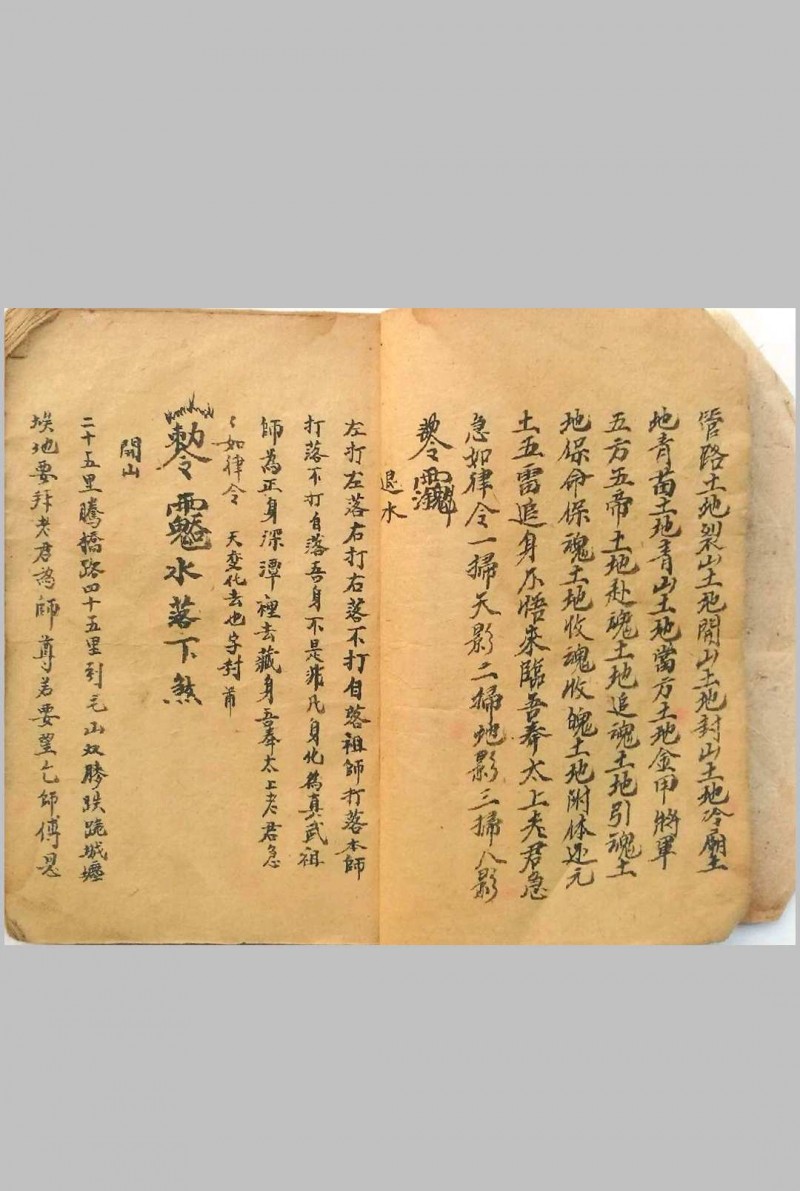 管路土地裂山土地開山土地封山土地冷廟土
地青苗土地青山土地當方土地金甲將軍
五方五帝土地赴魂土地追魂土地引魂土
地保命保魂土地收魂收魄土地附体还元
土五雷追身不悟来臨吾奉太上老君急
急如律令一掃天影二掃地影三掃人影
勅令
退水
左打左落右打右落不打自落祖師打落本師
打落不打自落吾身不是非凡身化為真武祖
師為正身深潭裡去藏身吾奉太上老君急
〻如律令 天変化去也字封
勅令 水落下煞
開山
二十五里騰橋路四十五里到毛山双膝跌跪城壥
埃地要拜老君為師尊若要望乞師傅恩